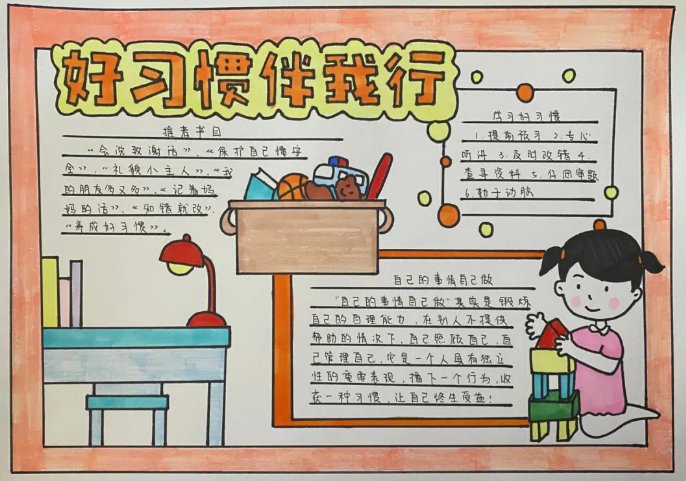 好习惯伴我行
推荐书目
"会说致谢话"、"保护自己懂安
全"、"礼貌小主人"、"我
的朋友多又多"、"记着妈
妈的话"、"知错就改"、
"养成好习惯"。
学习好习惯
1.提前预习 2.专心
听讲 3.及时改错 4.
查寻资料 5.仔细审题
6.勤于动脑
自己的事情自己做
"自己的事情自己做"其实是锻炼
自己的自理能力，在别人不提供
帮助的情况下，自己照顾自己，自
己管理自己，它是一个人具有独立
性的重要表现，播下一个行为，收
获一种习惯，让自己终生受益！